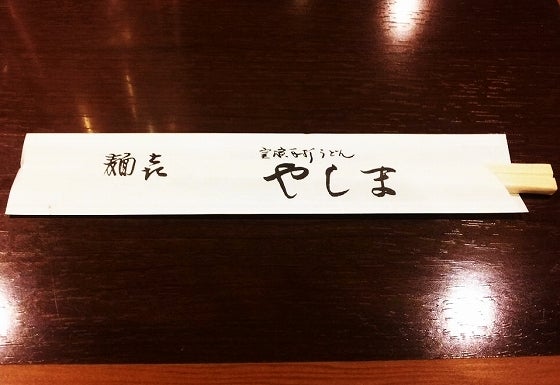 麺喜
手打うどん
やしま